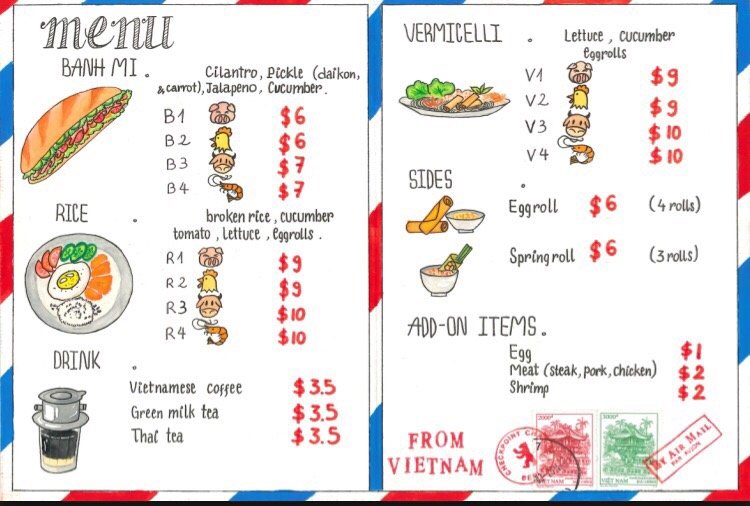 menu
BANH MI .
Cilantro, Pickle (daikon,
& carrot), Jalapeno, Cucumber.
B1 $6
B2 $6
B3 $7
B4 $7
RICE .
broken rice, cucumber
tomato, lettuce, eggrolls.
R1 $9
R2 $9
R3 $10
R4 $10
DRINK
Vietnamese coffee $3.5
Green milk tea $3.5
Thai tea $3.5
VERMICELLI .
Lettuce, cucumber
eggrolls
V1 $9
V2 $9
V3 $10
V4 $10
SIDES .
Eggroll $6 (4 rolls)
Springroll $6 (3 rolls)
ADD-ON ITEMS.
Egg $1
Meat (steak, pork, chicken) $2
Shrimp $2
FROM
VIETNAM
CHECKPOINT
2000đ
VIET NAM
3000đ
VIET NAM
BY AIR MAIL
PAR AVION